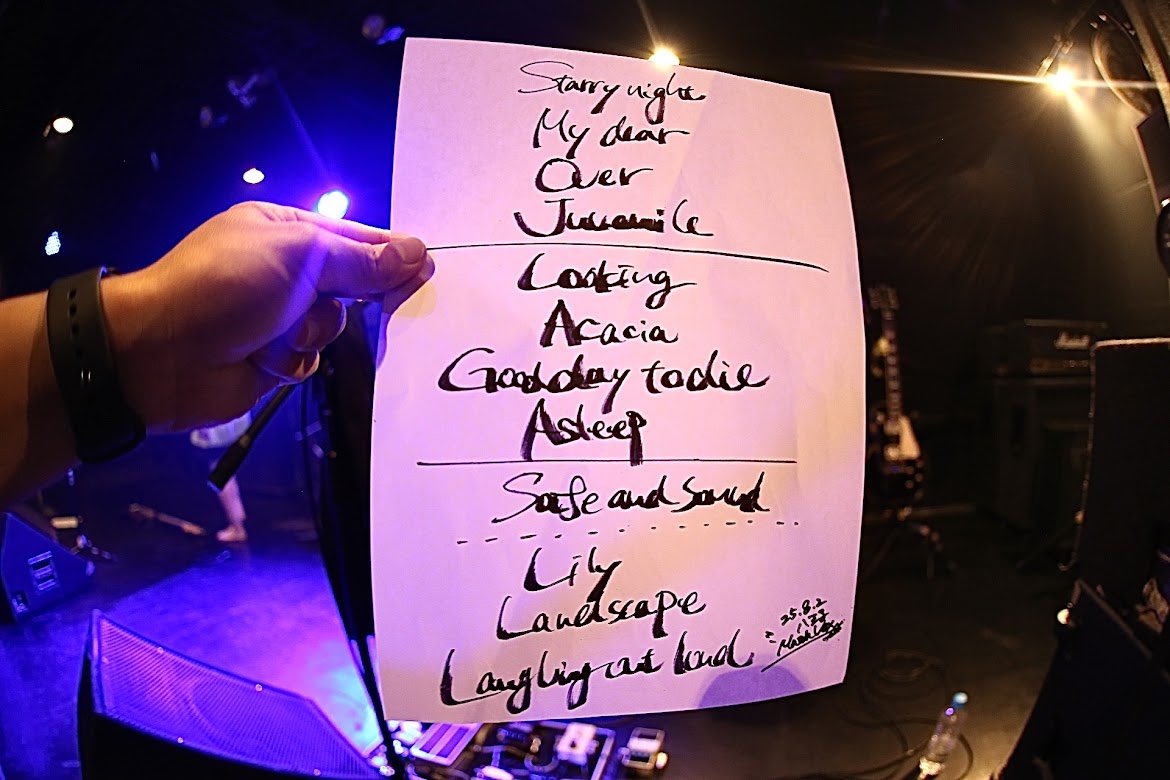 Starry night
My dear
Over
Juvenile
Looking
Acacia
Good day to die
Asleep
Safe and Sound
Lily
Landscape
Laughing out loud
25.8.2
Marshall